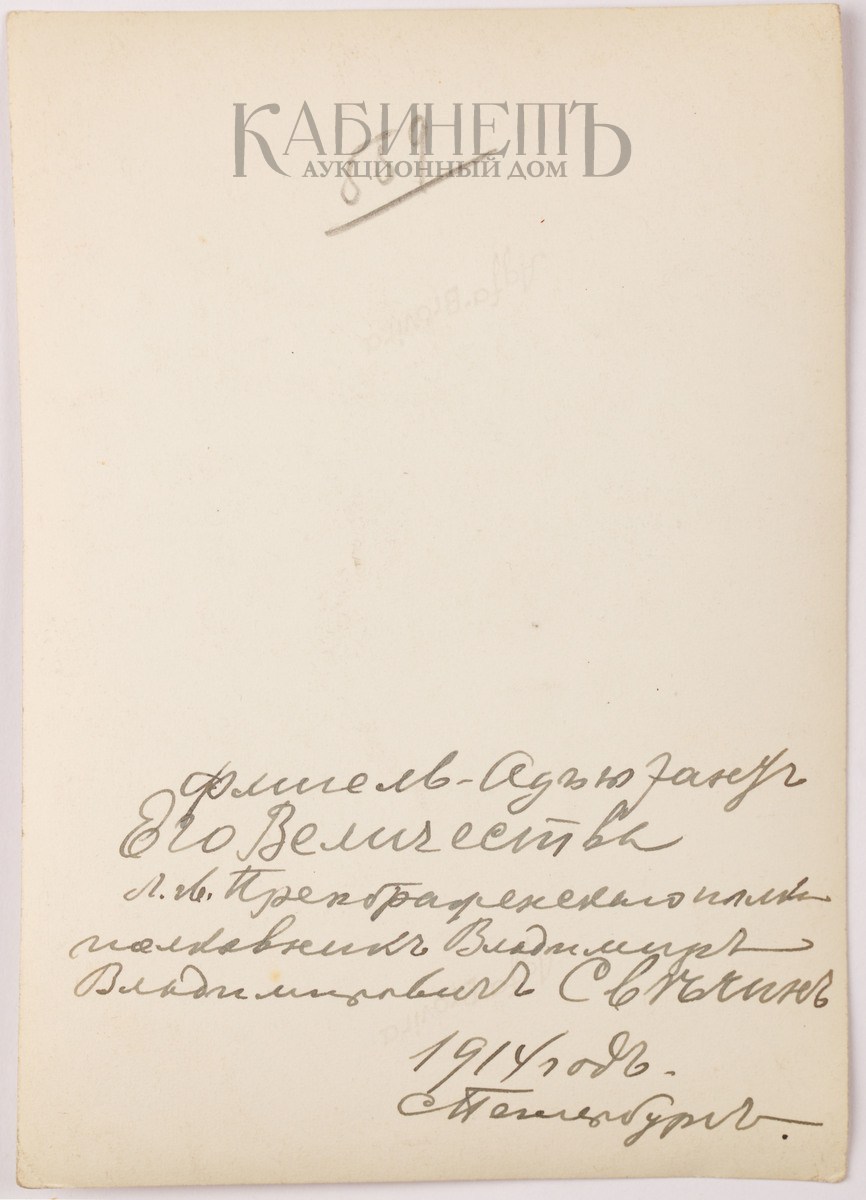 КАБИНЕТЪ
АУКЦИОННЫЙ ДОМ
559
Флигель-Адъютантъ
Его Величества
Л.Гв. Преображенскаго полка
полковникъ Владимиръ
Владимировичъ Свѣчинъ
1914 годъ.
СПетербургъ.